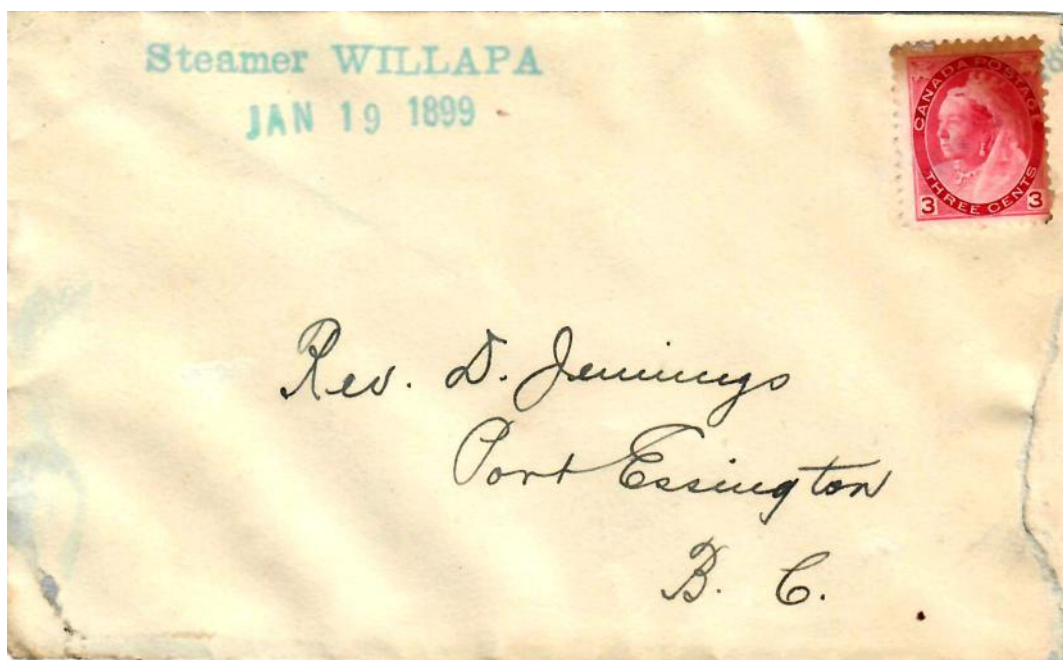 Steamer WILLAPA
JAN 19 1899
CANADA POSTAGE
THREE CENTS
3 3
Rev. D. Jennings
Port Essington
B. C.